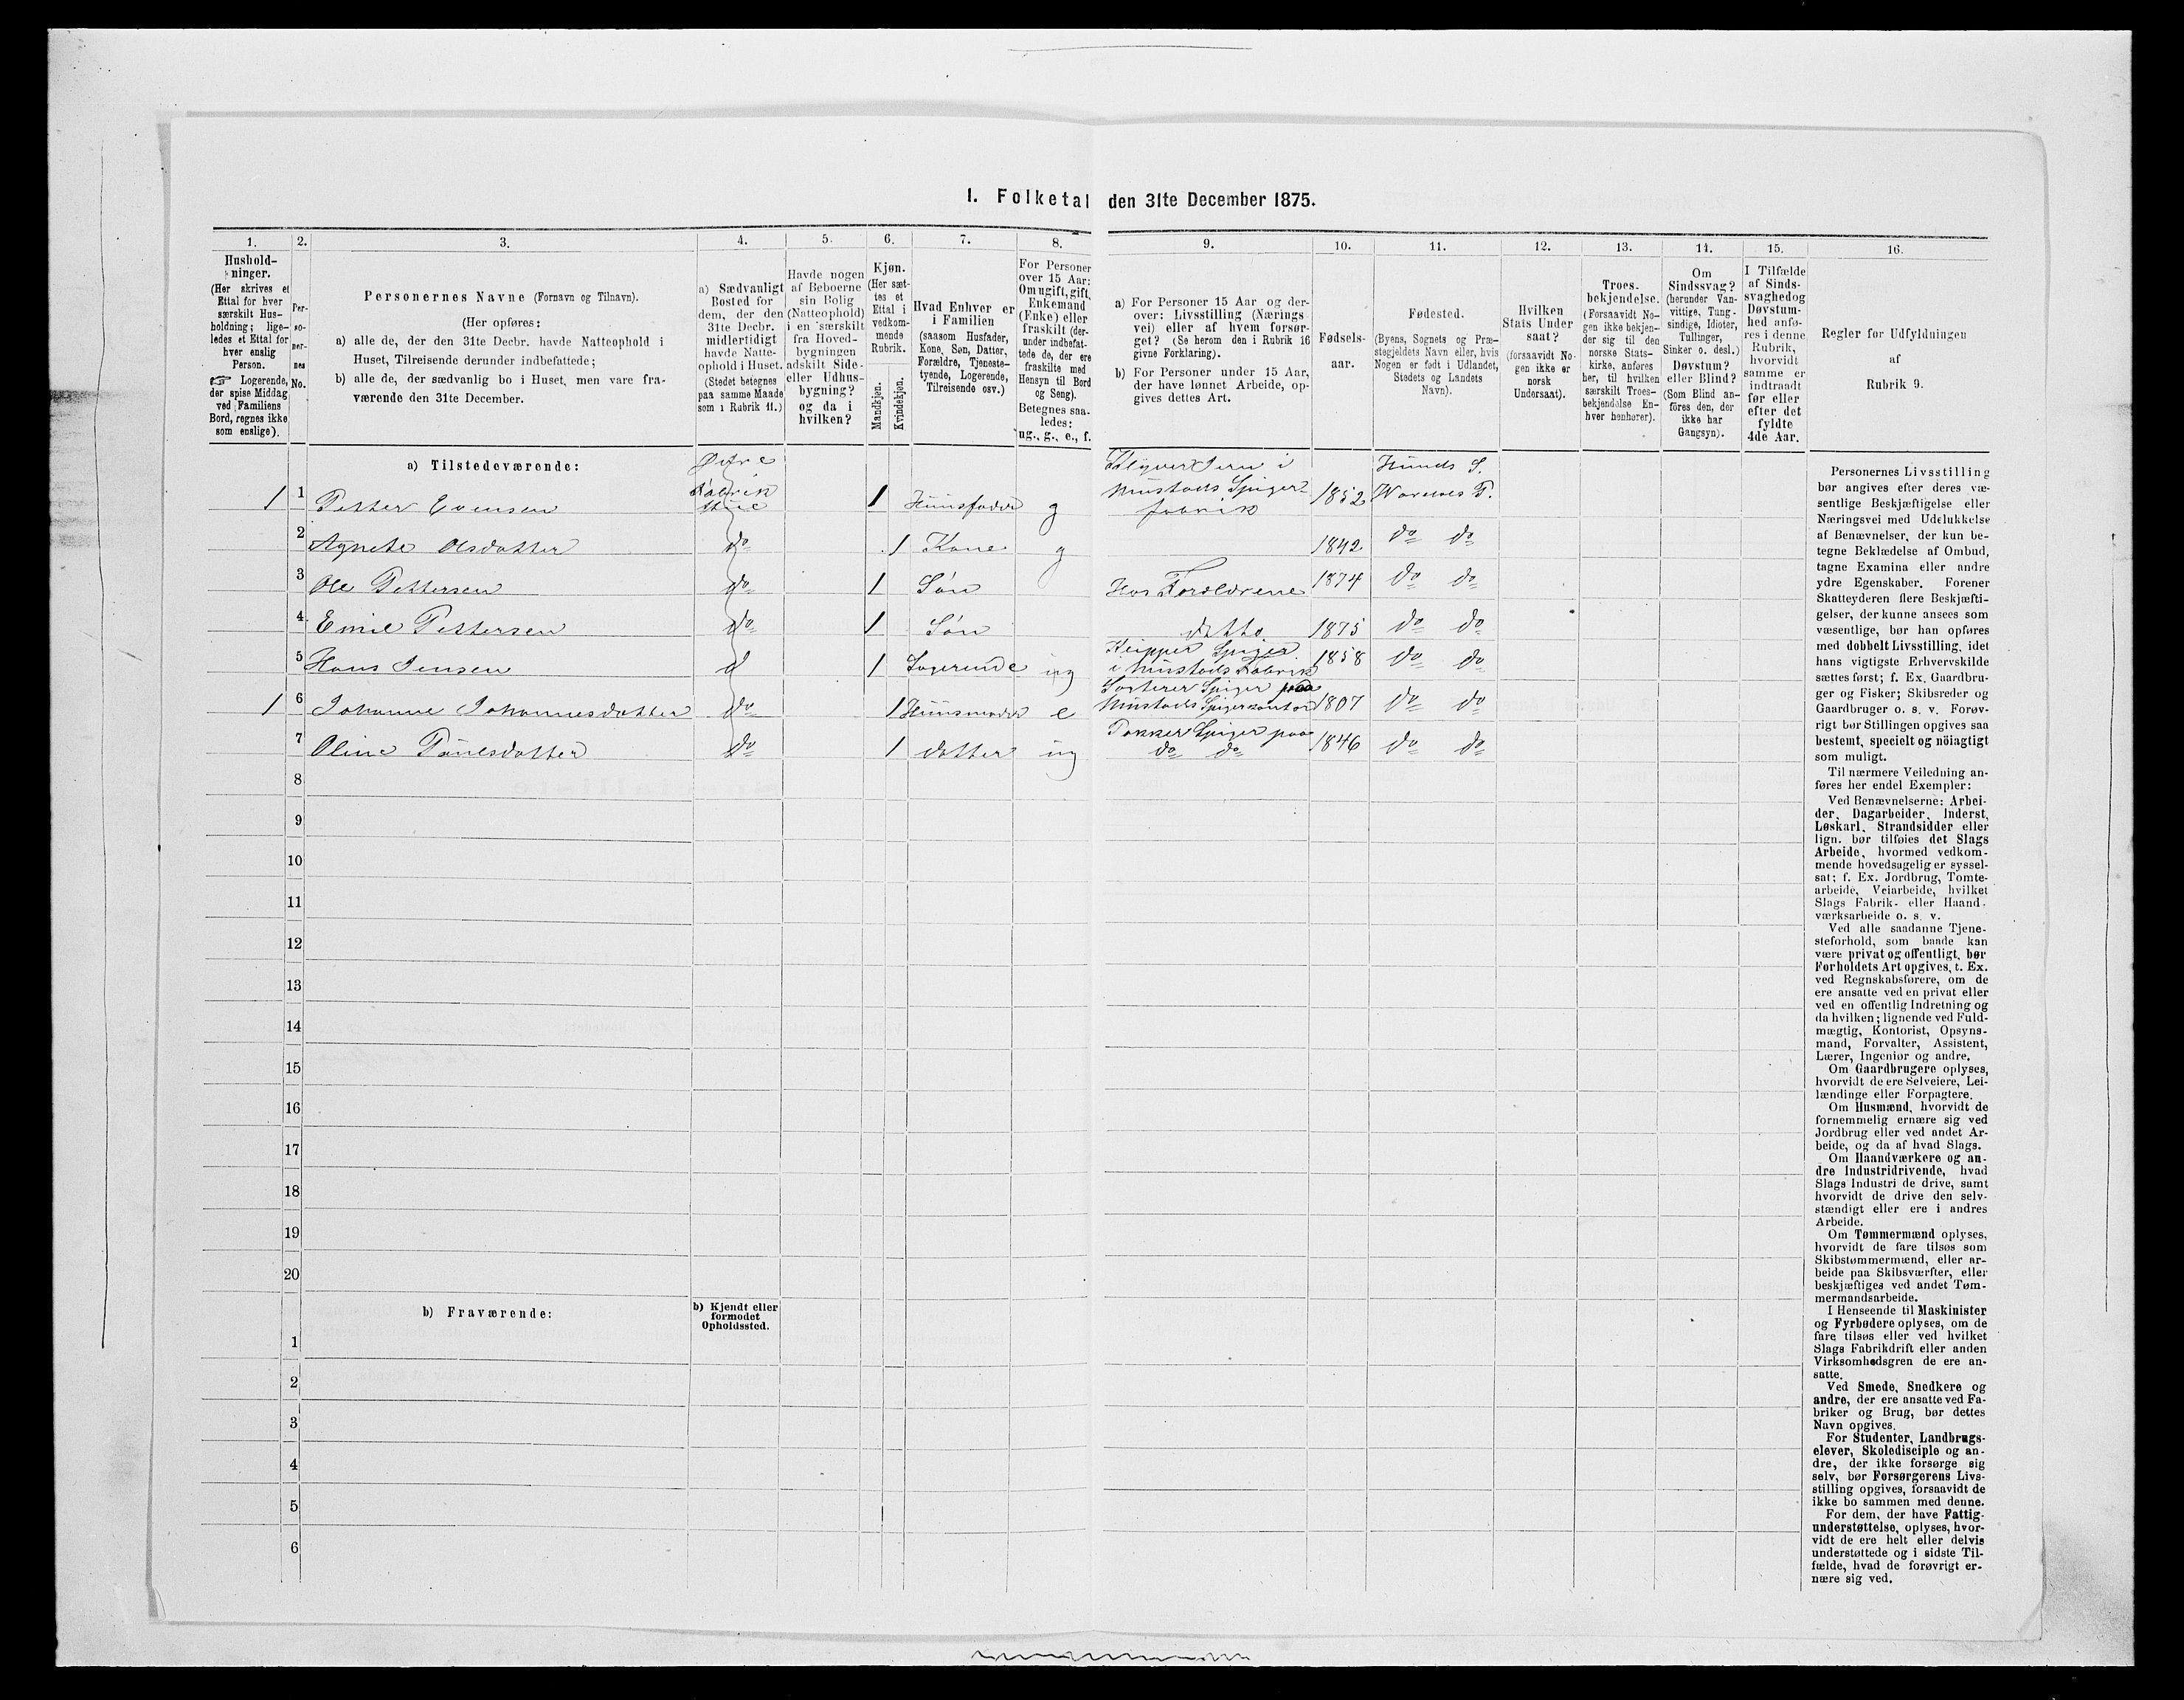 I. Folketal den 31te December 1875.
1. 2. 3. 4. 5. 6. 7. 8. 9. 10. 11. 12. 13. 14. 15. 16.
Hushold-
ninger.
(Her skrives et
Ettal for hver
særskilt Hus-
holdning; lige-
ledes et Ettal for
hver enslig
Person.
☞ Logerende,
der spise Middag
ved Familiens
Bord, regnes ikke
som enslige).
Per-
so-
ner-
nes
No.
Personernes Navne (Fornavn og Tilnavn).
(Her opføres:
a) alle de, der den 31te Decbr. havde Natteophold i
Huset, Tilreisende derunder indbefattede;
b) alle de, der sædvanlig bo i Huset, men vare fra-
værende den 31te December.
a) Sædvanligt
Bosted for
dem, der den
31te Decbr.
midlertidigt
havde Natte-
ophold i Huset.
(Stedet betegnes
paa samme Maade
som i Rubrik 11.)
Havde nogen
af Beboerne
sin Bolig
(Natteophold)
i en særskilt
fra Hoved-
bygningen
adskilt Side-
eller Udhus-
bygning?
og da i
hvilken?
Kjøn.
(Her sæt-
tes et
Ettal i
vedkom-
mende
Rubrik.
Mandkjøn.
Kvindekjøn.
Hvad Enhver er
i Familien
(saasom Husfader,
Kone, Søn, Datter,
Forældre, Tjeneste-
tyende, Logerende,
Tilreisende osv.)
For Personer
over 15 Aar:
Om ugift, gift,
Enkemand
(Enke) eller
fraskilt (der-
under indbefat-
tede de, der ere
fraskilte med
Hensyn til Bord
og Seng).
Betegnes saa-
ledes:
ug., g., e., f.
a) For Personer 15 Aar og der-
over: Livsstilling (Nærings-
vei) eller af hvem forsør-
get? (Se herom den i Rubrik 16
givne Forklaring).
b) For Personer under 15 Aar,
der have lønnet Arbeide, op-
gives dettes Art.
Fødsels-
aar.
Fødested.
(Byens, Sognets og Præ-
stegjeldets Navn eller, hvis
Nogen er født i Udlandet,
Stedets og Landets
Navn).
Hvilken
Stats Under
saat?
(forsaavidt No-
gen ikke er
norsk
Undersaat).
Troes-
bekjendelse.
(Forsaavidt No-
gen ikke bekjen-
der sig til den
norske Stats-
kirke, anføres
her, til hvilken
særskilt Troes-
bekjendelse En-
hver henhører).
Om
Sindssvag?
(herunder Van-
vittige, Tung-
sindige, Idioter,
Tullinger,
Sinker o. desl.)
Døvstum?
eller Blind?
(Som Blind an-
føres den, der
ikke har
Gangsyn).
I Tilfælde
af Sinds-
svaghed og
Døvstum-
hed anfø-
res i denne
Rubrik,
hvorvidt
samme er
indtraadt
før eller
efter det
fyldte
4de Aar.
Regler for Udfyldningen
af
Rubrik 9.
a) Tilstedeværende:
Øvre
Fabrik
Klyver Jern i
Mustads Spiger-
fabrik
Hunds S.
Wardals P.
1 1 Petter Evensen 1 Huusfader g 1852
2 Agnete Olsdatter do 1 Kone g 1842 do do
3 Ole Pettersen do 1 Søn Hos Forældrene 1874 do do
4 Emil Pettersen do 1 Søn ditto 1875 do do
5 Hans Jensen d 1 Logerende ug Klipper Spiger
i Mustads Fabrik 1858 do do
1 6 Johanne Johannesdatter do 1 Huusmoder e Sorterer Spiger paa
Mustads Spigerkontor 1807 do do
7 Oline Paulsdatter do 1 datter ug Pakker Spiger paa
do do 1846 do do
8
9
10
11
12
13
14
15
16
17
18
19
20
b) Fraværende:
b) Kjendt eller
formodet
Opholdssted.
1
2
3
4
5
6
Personernes Livsstilling
bør angives efter deres væ-
sentlige Beskjæftigelse eller
Næringsvei med Udelukkelse
af Benævnelser, der kun be-
tegne Beklædelse af Ombud,
tagne Examina eller andre
ydre Egenskaber. Forener
Skatteyderen flere Beskjæfti-
gelser, der kunne ansees som
væsentlige, bør han opføres
med dobbelt Livsstilling, idet
hans vigtigste Erhvervskilde
sættes først; f. Ex. Gaardbru-
ger og Fisker; Skibsreder og
Gaardbruger o. s. v. Forøv-
rigt bør Stillingen opgives saa
bestemt, specielt og nöiagtigt
som muligt.
Til nærmere Veiledning an-
føres her endel Exempler:
Ved Benævnelserne: Arbei-
der, Dagarbeider, Inderst,
Løskarl, Strandsidder eller
lign. bør tilføies det Slags
Arbeide, hvormed vedkom-
mende hovedsagelig er syssel-
sat; f. Ex. Jordbrug, Tomte-
arbeide, Veiarbeide, hvilket
Slags Fabrik- eller Haand-
værksarbeide o. s. v.
Ved alle saadanne Tjene-
steforhold, som baade kan
være privat og offentligt, bør
Forholdets Art opgives, t. Ex.
ved Regnskabsførere, om de
ere ansatte ved en privat eller
ved en offentlig Indretning og
da hvilken; lignende ved Fuld-
mægtig, Kontorist, Opsyns-
mand, Forvalter, Assistent,
Lærer, Ingeniør og andre.
Om Gaardbrugere oplyses,
hvorvidt de ere Selveiere, Lei-
lændinge eller Forpagtere.
Om Husmænd, hvorvidt de
fornemmelig ernære sig ved
Jordbrug eller ved andet Ar-
beide, og da af hvad Slags.
Om Haandværkere og an-
dre Industridrivende, hvad
Slags Industri de drive, samt
hvorvidt de drive den selv-
stændigt eller ere i andres
Arbeide.
Om Tømmermænd oplyses,
hvorvidt de fare tilsøs som
Skibstømmermænd, eller ar-
beide paa Skibsværfter, eller
beskjæftiges ved andet Tøm-
mermandsarbeide.
I Henseende til Maskinister
og Fyrbødere oplyses, om de
fare tilsøs eller ved hvilket
Slags Fabrikdrift eller anden
Virksomhedsgren de ere an-
satte.
Ved Smede, Snedkere og
andre, der ere ansatte ved Fa-
briker og Brug, bør dettes
Navn opgives.
For Studenter, Landbrugs-
elever, Skoledisciple og an-
dre, der ikke forsørge sig
selv, bør Forsørgerens Livs-
stilling opgives, forsaavidt de
ikke bo sammen med denne.
For dem, der have Fattig-
understøttelse, oplyses, hvor-
vidt de ere helt eller delvis
understøttede og i sidste Til-
fælde, hvad de forøvrigt er-
nære sig ved.